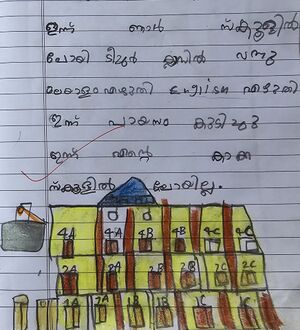 ഇന്ന് ഞാൻ സ്കൂളിൽ
പോയി ടീച്ചർ ക്ലാസിൽ വന്നു
മലയാളം എഴുതി English എഴുതി
ഇന്ന് പായസം കുടിച്ചു
ഇന്ന് എൻ്റെ കാക്ക
സ്കൂളിൽ പോയില്ല.
4A 4A 4B 4B 4C 4C
2A 2A 2B 2B 2C 2C
1A 1A 1B 1B 1C 1C